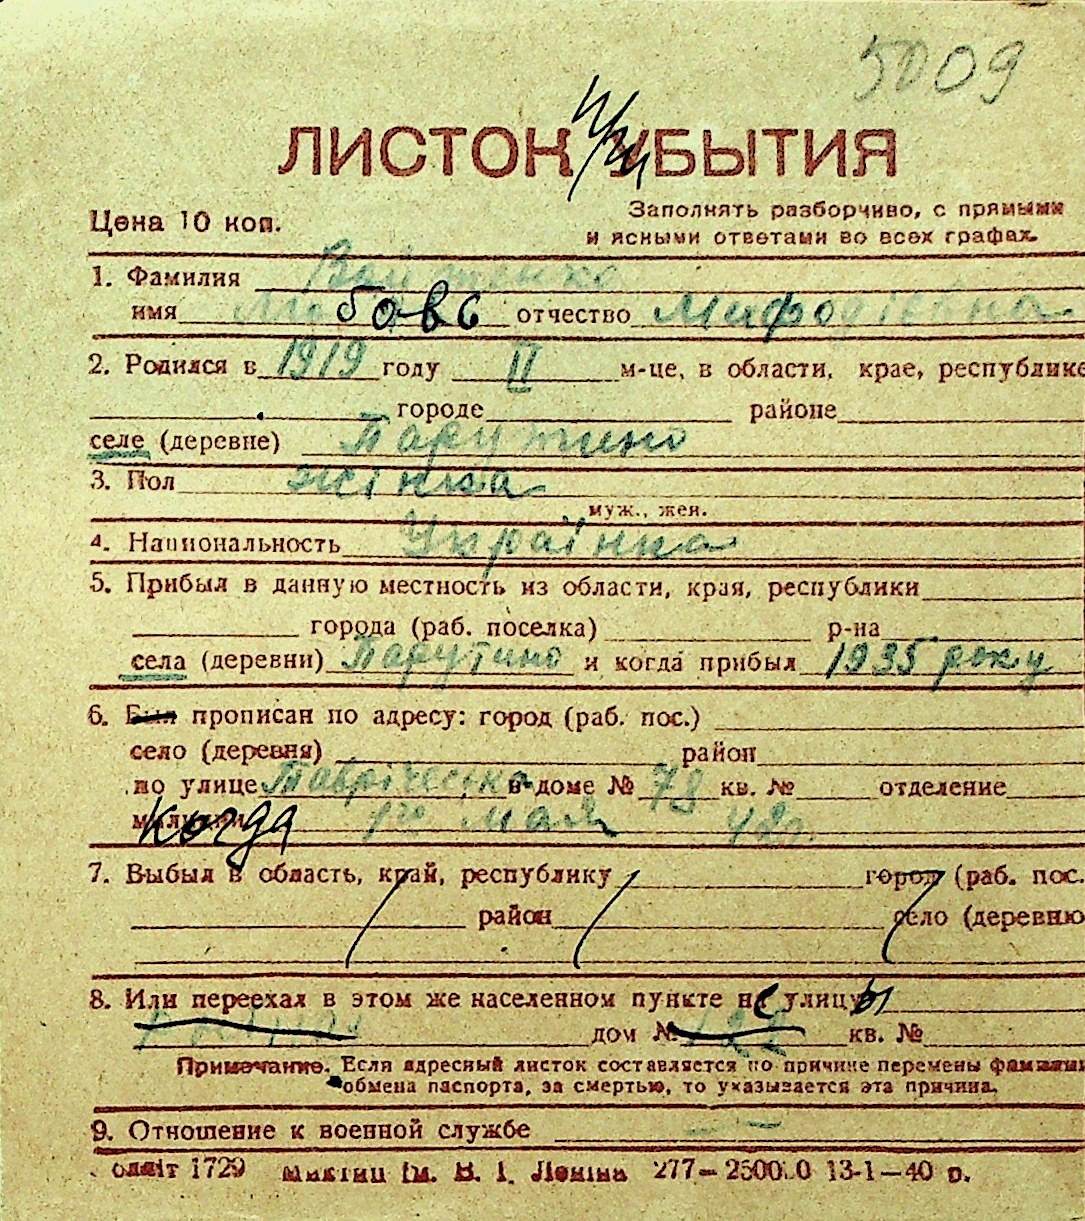 5009
ЛИСТОК УБЫТИЯ
Цена 10 коп.
Заполнять разборчиво, с прямыми
и ясными ответами во всех графах.
1. Фамилия Войтенко
имя Любовь отчество Мифодіевна
2. Родился в 1919 году II м-це, в области, крае, республике
городе районе
селе (деревне) Парутино
3. Пол жінка
муж., жен.
4. Национальность Українка
5. Прибыл в данную местность из области, края, республики
города (раб. поселка) р-на
села (деревни) Парутино и когда прибыл 1935 року
6. Был прописан по адресу: город (раб. пос.)
село (деревня) район
по улице Таврічеська в доме № 78 кв. № отделение
милиции когда 1го мая 42г.
7. Выбыл в область, край, республику город (раб. пос.
район село (деревню
8. Или переехал в этом же населенном пункте не улицы
дом № кв. №
Примечание. Если адресный листок составляется по причине перемены фамилии
обмена паспорта, за смертью, то указывается эта причина.
9. Отношение к военной службе —
1729 ім. В. І. Леніна 277— 13-1—40 р.